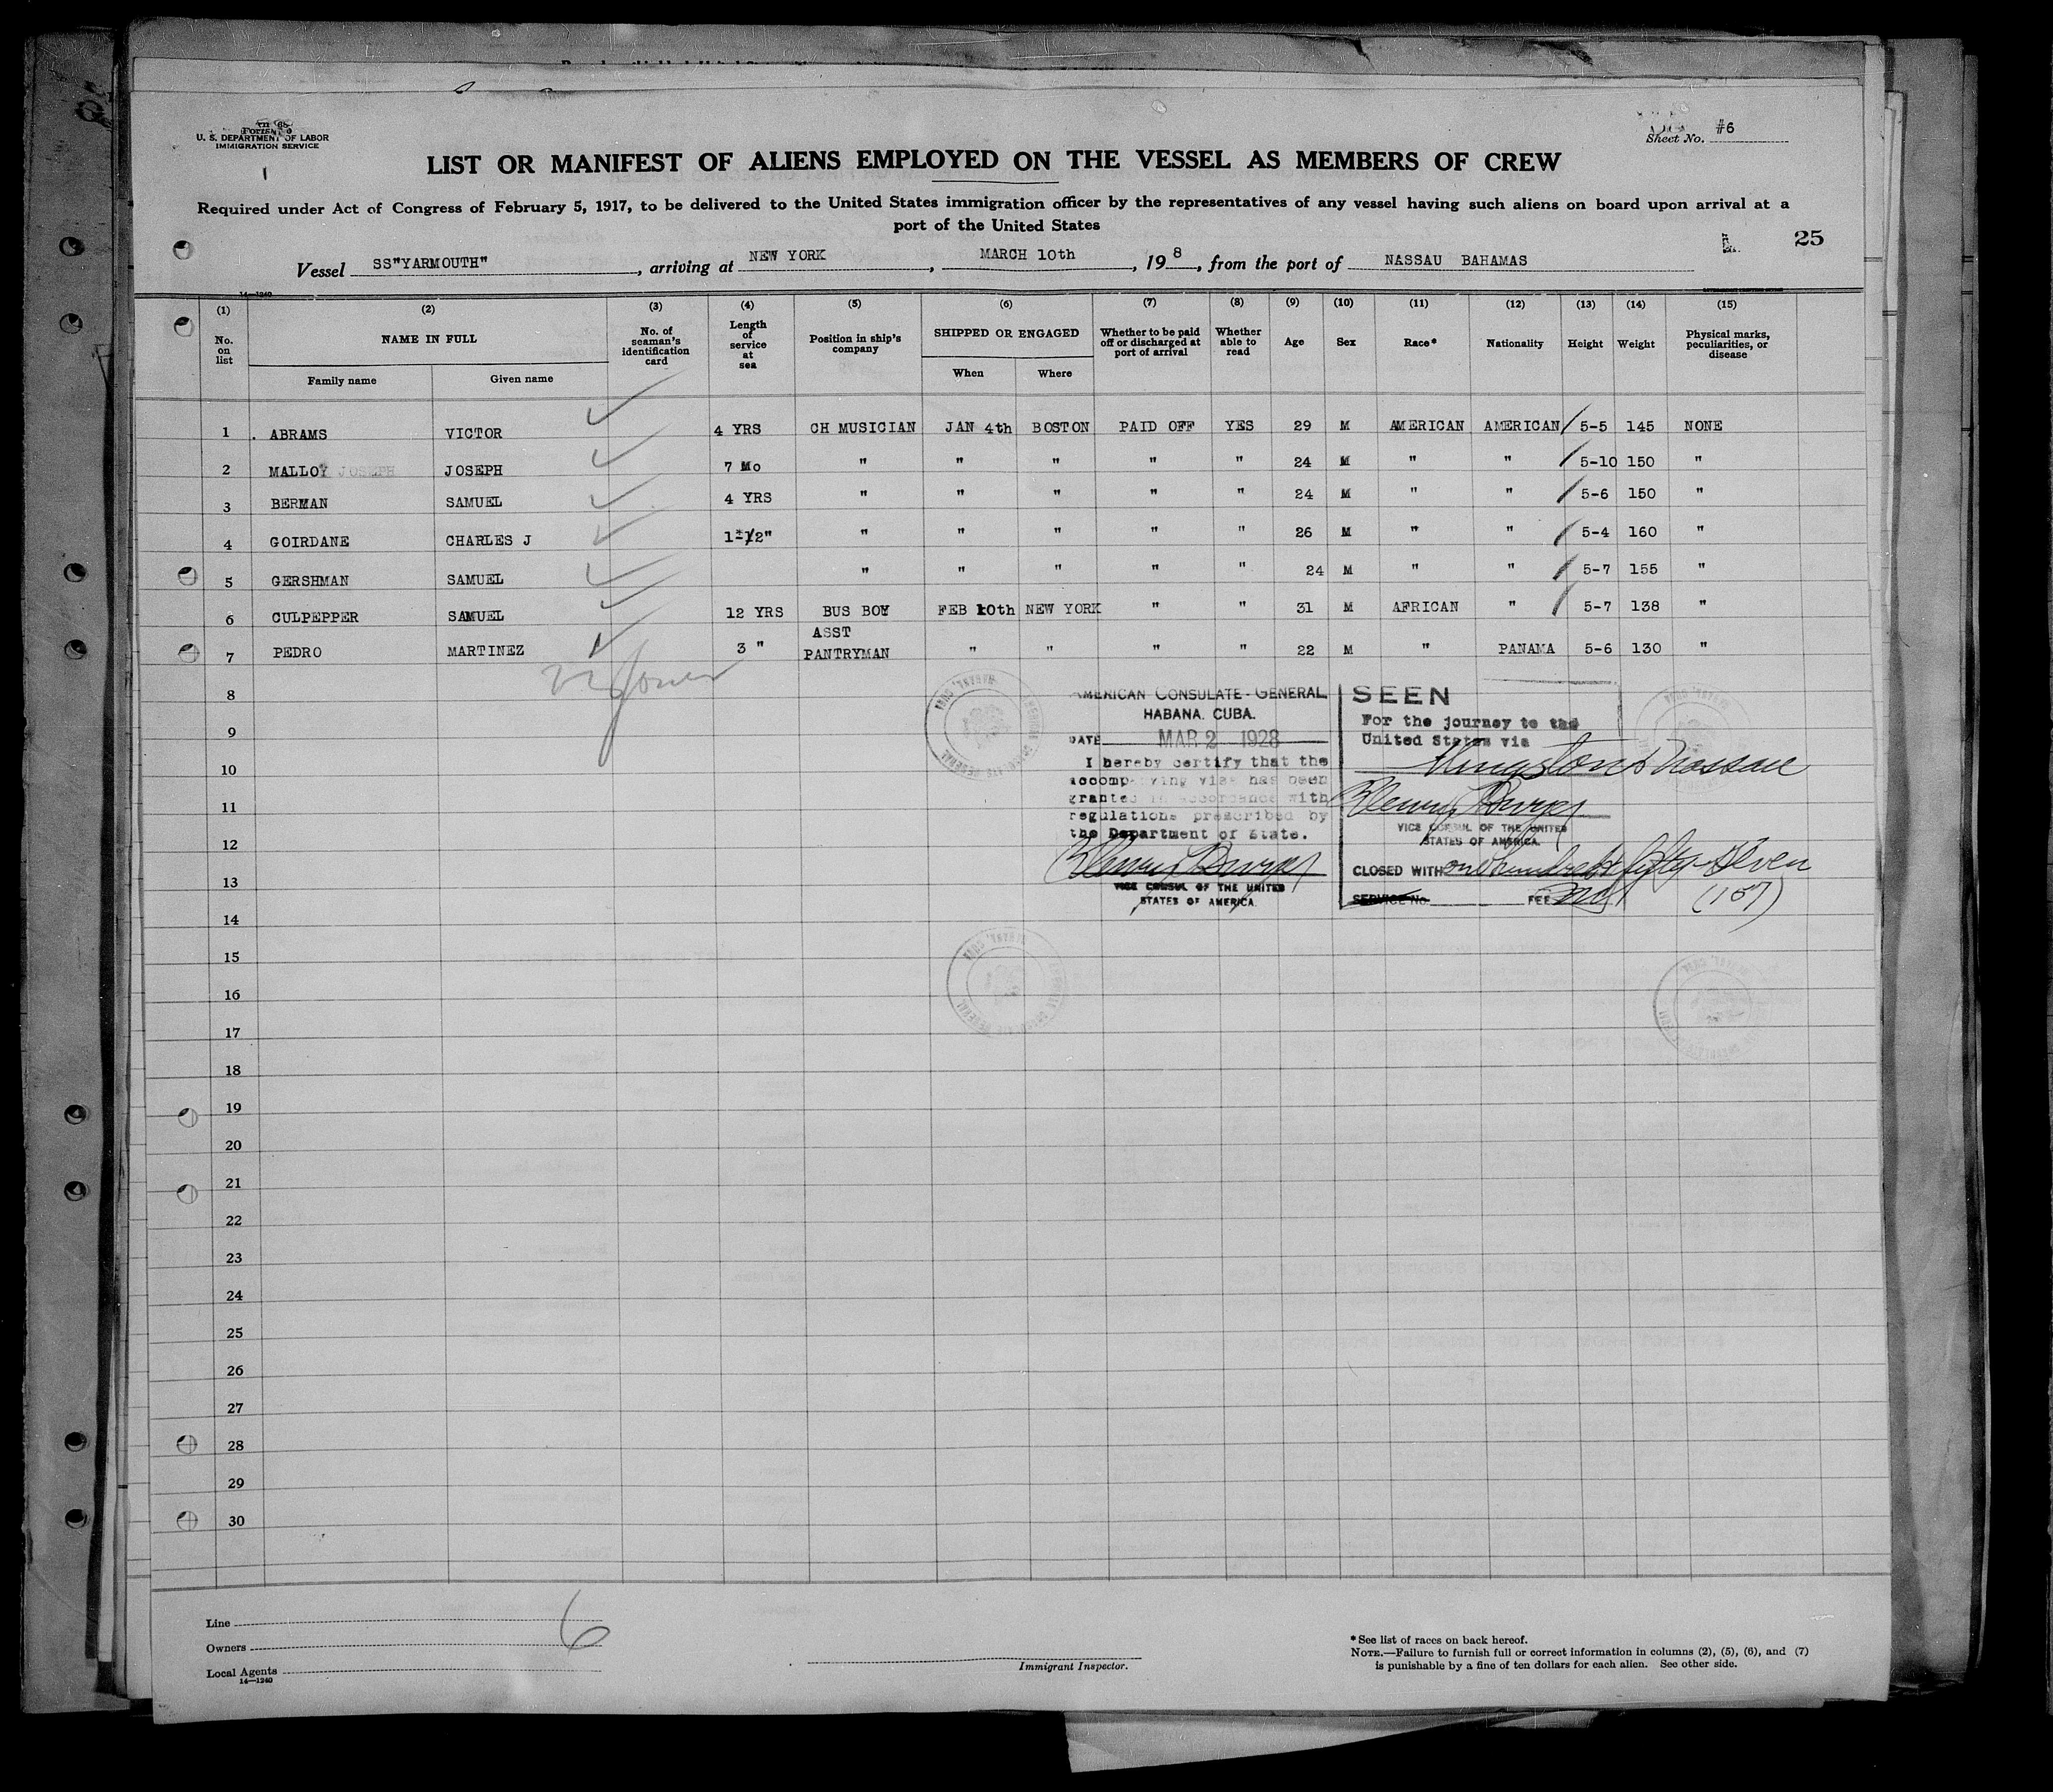 Sheet No. #6
U. S. DEPARTMENT OF LABOR
IMMIGRATION SERVICE
LIST OR MANIFEST OF ALIENS EMPLOYED ON THE VESSEL AS MEMBERS OF CREW
Required under Act of Congress of February 5, 1917, to be delivered to the United States immigration officer by the representatives of any vessel having such aliens on board upon arrival at a
port of the United States
25
Vessel SS"YARMOUTH", arriving at NEW YORK, MARCH 10th, 19 8, from the port of NASSAU BAHAMAS
14—1240
(1) (2) (3) (4) (5) (6) (7) (8) (9) (10) (11) (12) (13) (14) (15)
No. on list NAME IN FULL Family name Given name No. of seaman's identification card Length of service at sea Position in ship's company SHIPPED OR ENGAGED When Where Whether to be paid off or discharged at port of arrival Whether able to read Age Sex Race* Nationality Height Weight Physical marks, peculiarities, or disease
1 ABRAMS VICTOR 4 YRS CH MUSICIAN JAN 4th BOSTON PAID OFF YES 29 M AMERICAN AMERICAN 5-5 145 NONE
2 MALLOY JOSEPH JOSEPH 7 Mo " " " " " 24 M " " 5-10 150 "
3 BERMAN SAMUEL 4 YRS " " " " " 24 M " " 5-6 150 "
4 GOIRDANE CHARLES J 1-1/2" " " " " " 26 M " " 5-4 160 "
5 GERSHMAN SAMUEL " " " " " 24 M " " 5-7 155 "
6 CULPEPPER SAMUEL 12 YRS BUS BOY FEB 10th NEW YORK " " 31 M AFRICAN " 5-7 138 "
7 PEDRO MARTINEZ 3 " ASST PANTRYMAN " " " " 22 M " PANAMA 5-6 130 "
8
9
10
11
12
13
14
15
16
17
18
19
20
21
22
23
24
25
26
27
28
29
30
AMERICAN CONSULATE-GENERAL
HABANA. CUBA.
DATE MAR 2 1928
I hereby certify that the
accompanying visa has been
granted in accordance with
regulations prescribed by
the Department of State.
VICE CONSUL OF THE UNITED
STATES OF AMERICA.
SEEN
For the journey to the
United States via
Kingston & Nassau
VICE CONSUL OF THE UNITED
STATES OF AMERICA.
CLOSED WITH one hundred & fifty seven
SERVICE No. FEE
(157)
Line
Owners
Local Agents
14—1240
6
Immigrant Inspector.
*See list of races on back hereof.
NOTE.—Failure to furnish full or correct information in columns (2), (5), (6), and (7)
is punishable by a fine of ten dollars for each alien. See other side.